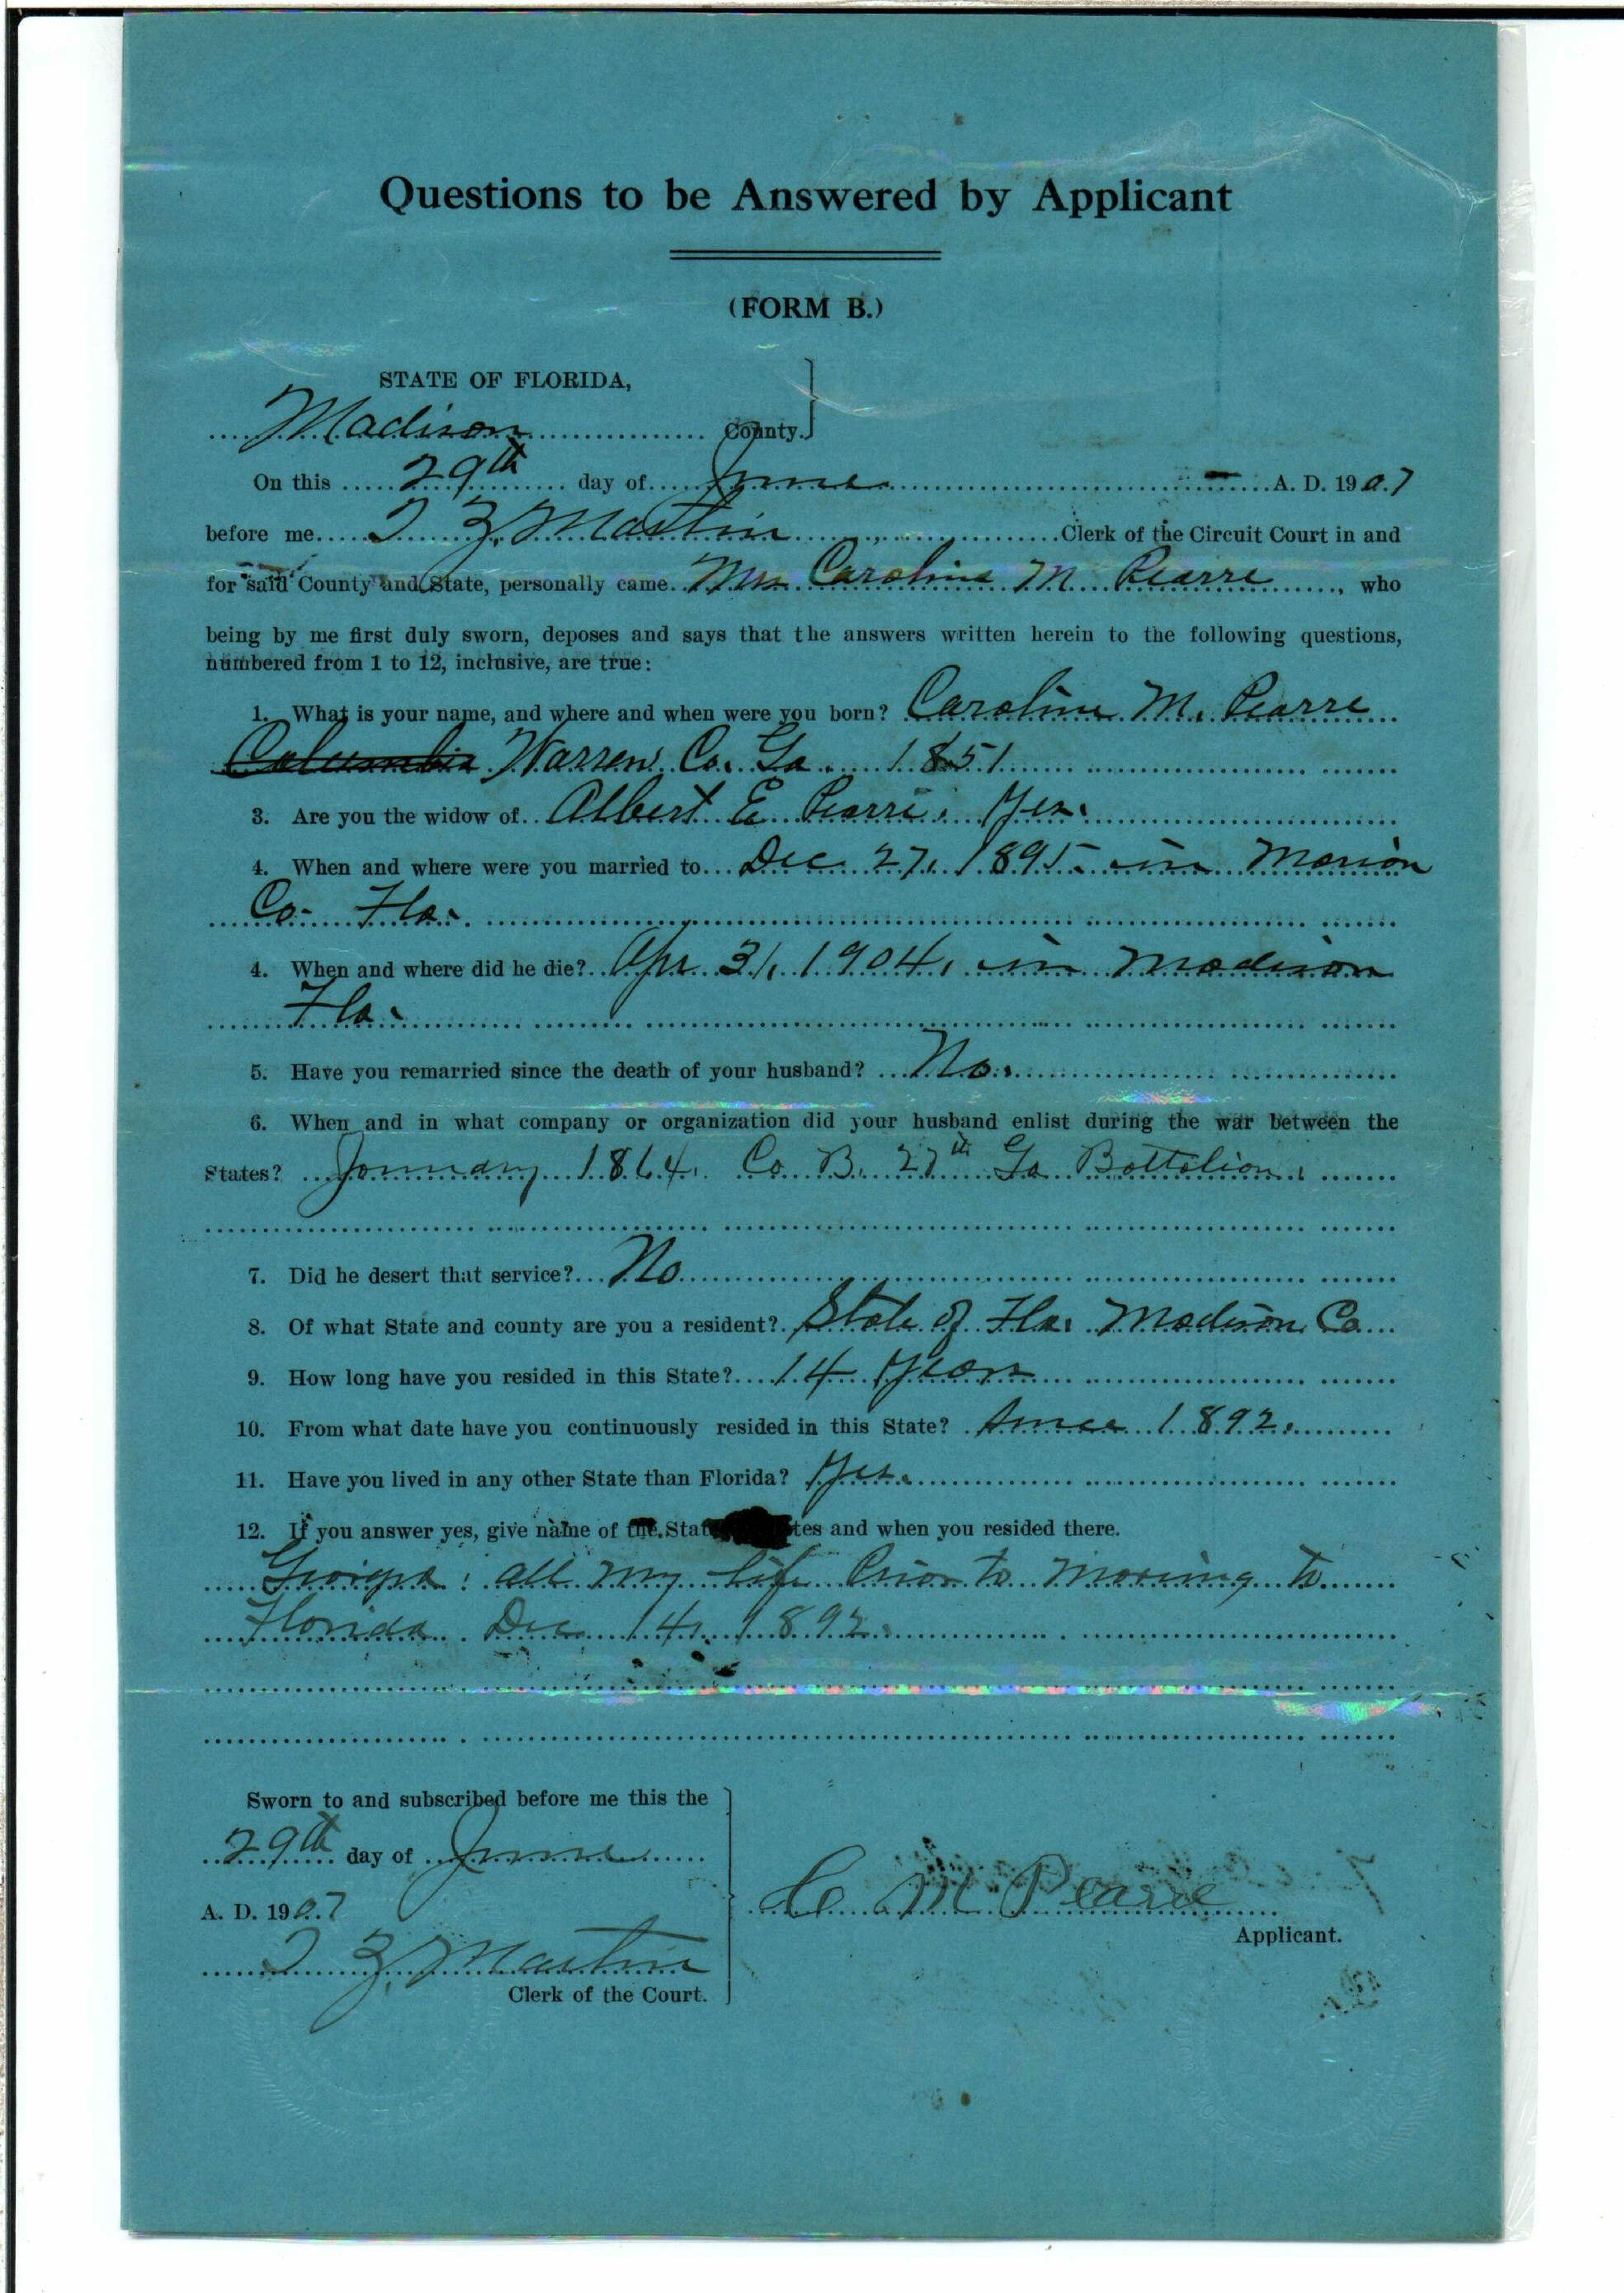 Questions to be Answered by Applicant
(FORM B.)
STATE OF FLORIDA,
Madison County.
On this 29th day of June A. D. 1907
before me T Z Martin Clerk of the Circuit Court in and
for said County and State, personally came Mrs Caroline M. Pearre, who
being by me first duly sworn, deposes and says that the answers written herein to the following questions,
numbered from 1 to 12, inclusive, are true:
1. What is your name, and where and when were you born? Caroline M. Pearre
Columbia Warren Co. Ga. 1851
3. Are you the widow of Albert E. Pearre. Yes.
4. When and where were you married to Dec. 27, 1895 in Marion
Co. Fla.
4. When and where did he die? Apr 31, 1904, in Madison
Fla.
5. Have you remarried since the death of your husband? No.
6. When and in what company or organization did your husband enlist during the war between the
States? January 1864. Co. B. 27th Ga Battalion.
7. Did he desert that service? No
8. Of what State and county are you a resident? State of Fla. Madison Co
9. How long have you resided in this State? 14 Years
10. From what date have you continuously resided in this State? Since 1892.
11. Have you lived in any other State than Florida? Yes.
12. If you answer yes, give name of the Stat tes and when you resided there.
Georgia: all my life Prior to moving to
Florida Dec 14, 1892.
Sworn to and subscribed before me this the
29th day of June
A. D. 1907
C. M Pearre
Applicant.
T Z Martin
Clerk of the Court.